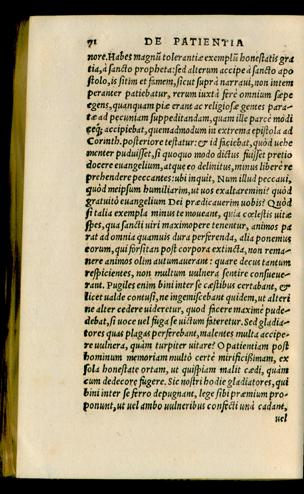 71 DE PATIENTIA
nore. Habes magnū tolerantiæ exemplū honestatis gra
tia, à sancto propheta: sed alterum accipe à sancto apo
stolo, is sitim et famem, sicut suprà narraui, non intem
peranter patiebatur, rerum iuxtà ferè omnium sæpe
egens, quanquam piæ erant ac religiosæ gentes para-
tæ ad pecuniam suppeditandam, quam ille parcè modi
ceq; accipiebat, quemadmodum in extrema epistola ad
Corinth. posteriore testatur: & id faciebat, quòd uehe
menter puduisset, si quoquo modo dictus fuisset pretio
docere euangelium, atque eo delinitus, minus liberè re
prehendere peccantes: ubi inquit, Num illud peccaui,
quòd meipsum humiliarim, ut uos exaltaremini? quòd
gratuitò euangelium Dei prædicauerim uobis? Quòd
si talia exempla minus te moueant, quià cœlestis uitæ
spes, qua sancti uiri maximopere tenentur, animos pa
rat ad omnia quamuis dura perferenda, alia ponemus
eorum, qui forsitan post corpora extincta, non rema-
nere animos olim autumauerant: quare decus tantum
respicientes, non multum uulnera sentire consueue-
rant. Pugiles enim bini inter se cæstibus certabant, &
licet ualde contusi, ne ingemiscebant quidem, ut alteri
ne alter cedere uideretur, quod facere maximè pude-
debat, si uoce uel fuga se uictum fateretur. Sed gladia-
tores quas plagas perferebant, malentes multa accipe-
re uulnera, quàm turpiter uitare? O patientiam post
hominum memoriam multò certè mirificißimam, ex
sola honestate ortam, ut quispiam malit cædi, quàm
cum dedecore fugere. Sic nostri hodie gladiatores, qui
bini inter se ferro depugnant, lege sibi præmium pro-
ponunt, ut uel ambo uulneribus confecti unà cadant,
uel